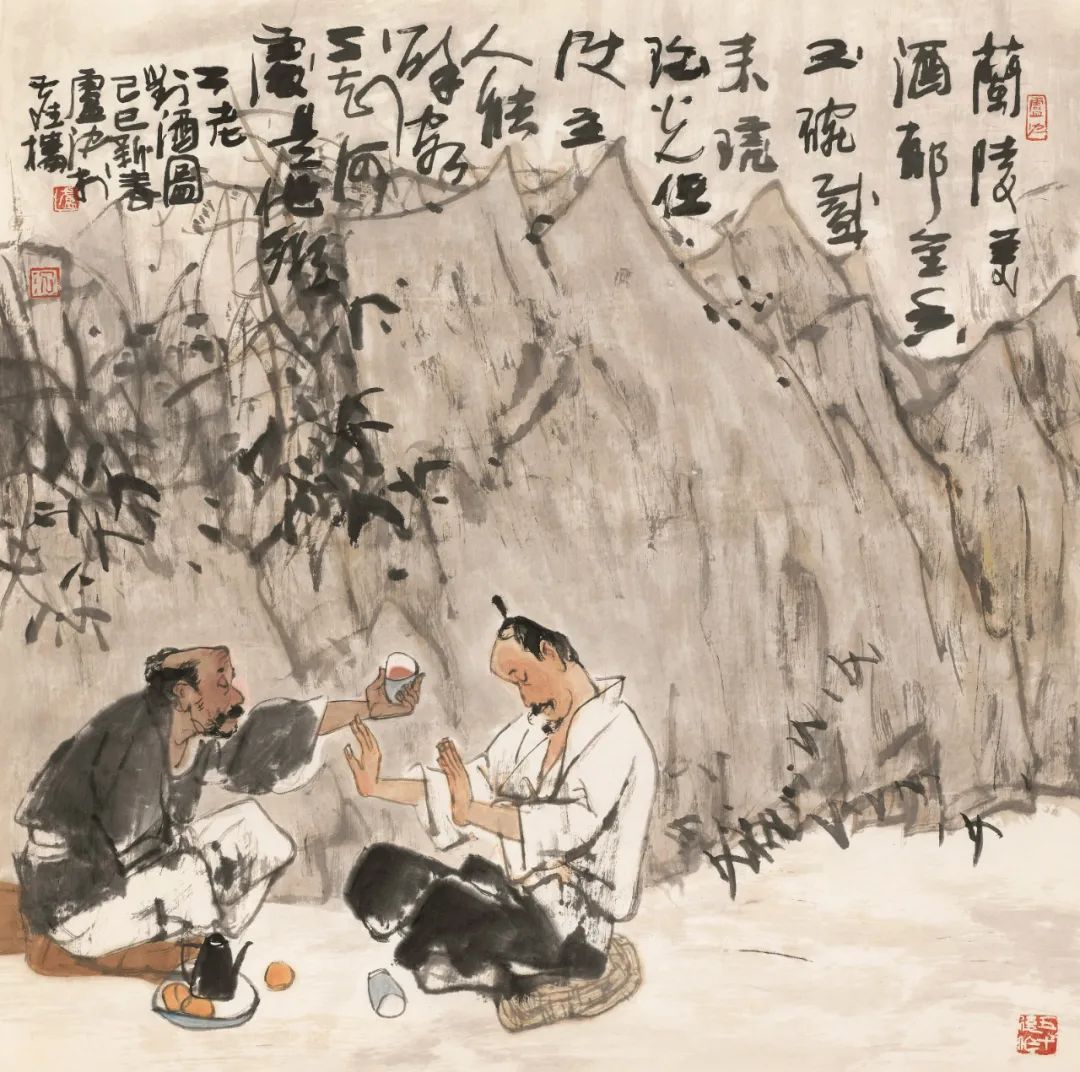 蘭陵美
酒郁金香
玉碗盛
来琥
珀光但
使主
人能
醉客
不知何
處是他鄉
二老
對酒圖
己巳新春
盧沉於
盧沉
沉
五十後作